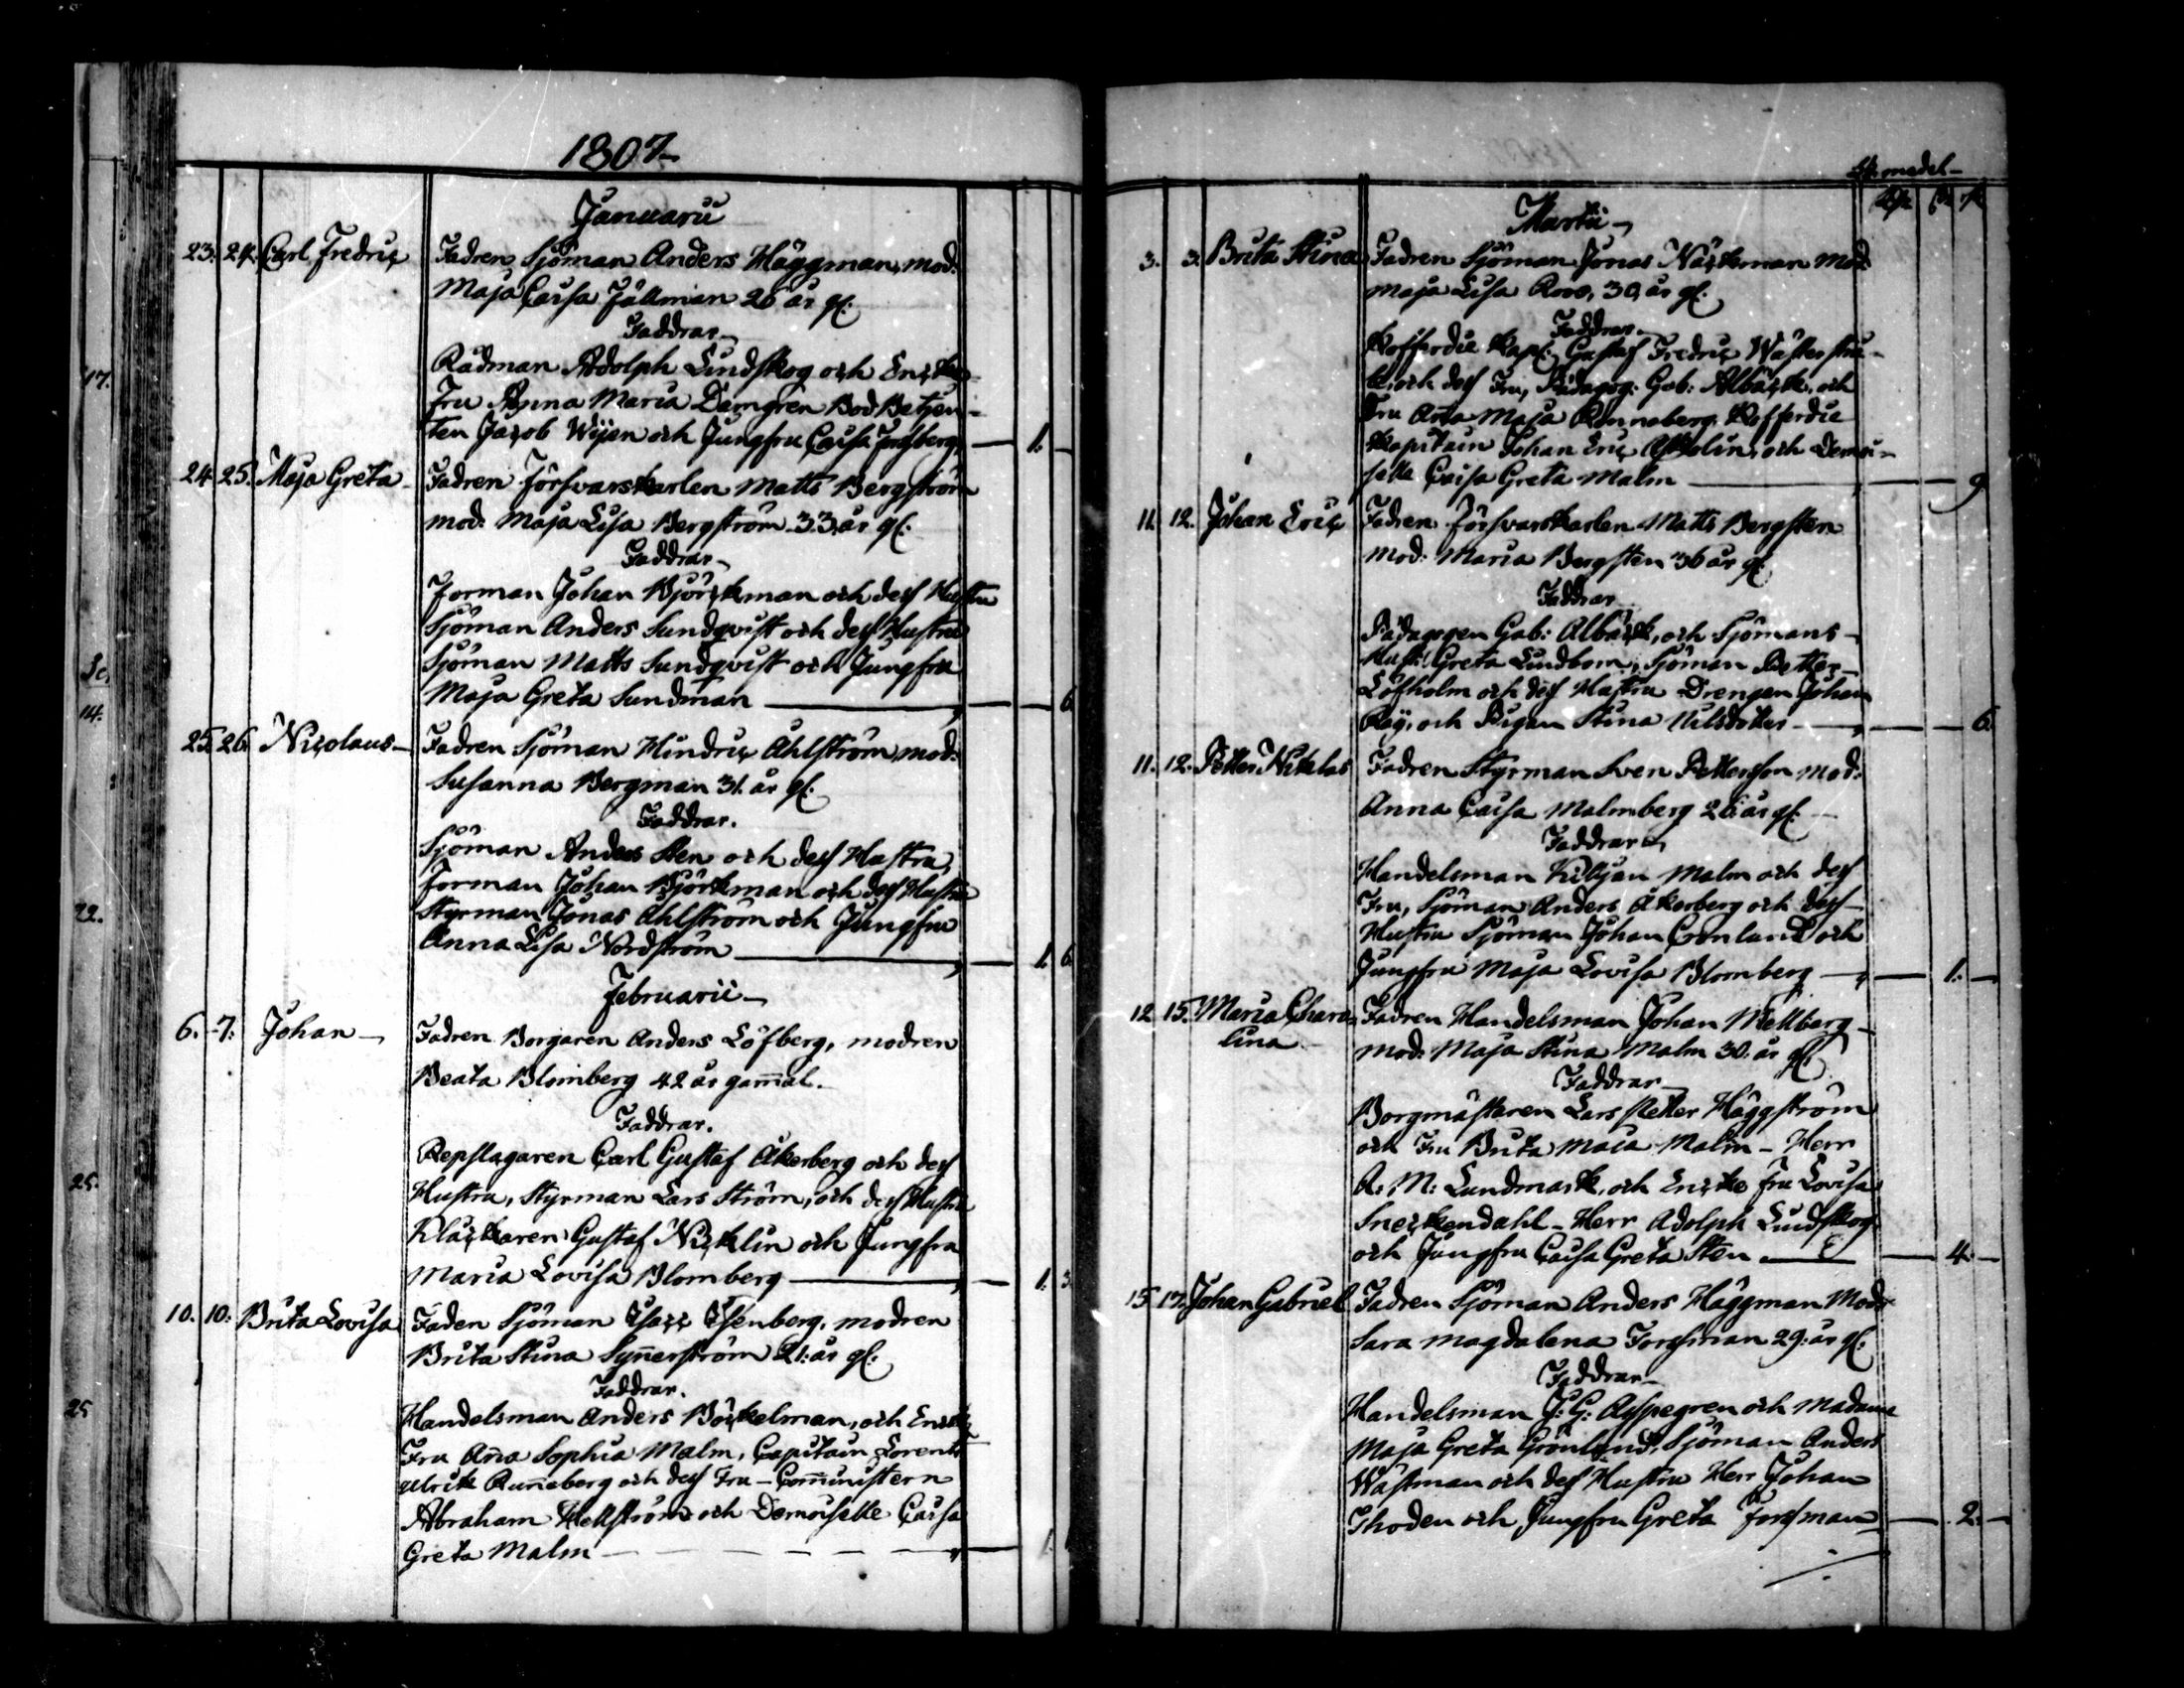 1807
Januarii
23. 24. Carl Fredric Fadren Sjöman Anders Häggman, mod:
Maja Caisa Fällman 26 år gl.
Faddrar
Rådman Adolph Lindskog och Encke
Fru Anna Maria Damgren Bod Betjen-
ten Jacob Wijen och Jungfru Caisa Forsberg 1.
24 25. Maja Greta Fadren Försvarskarlen Matts Bergström
mod: Maja Lisa Bergström 33 år gl.
Faddrar
Forman Johan Björckman och dess Hustru
Sjöman Anders Sundqvist och dess Hustru
Sjöman Matts Sundqvist och Jungfru
Maja Greta Sundman 6.
25. 26. Nicolaus Fadren Sjöman Hindric Åhlström, mod:
Susanna Bergman 31. år gl.
Faddrar.
Sjöman Anders Sten och dess Hustru,
Forman Johan Björkman och dess Hustru
Styrman Jonas Åhlström och Jungfru
Anna Lisa Nordström 1. 6.
Februarii
6. 7. Johan Fadren Borgaren Anders Löfberg, modren
Beata Blomberg 42 år gam̄al.
Faddrar.
Repslagaren Carl Gustaf Åkerberg och dess
Hustru, Styrman Lars Ström, och dess Hustru
Kläckaren Gustaf Nicklin och Jungfru
Maria Lovisa Blomberg 1. 3
10. 10. Brita Lovisa Faden Sjöman Isacc Isenberg, modren
Brita Stina Syn̄erström 21. år gl.
Faddrar.
Handelsman Anders Böckelman, och Encke
Fru An̄a Sophia Malm, Capitain Lorents
Ulrik Run̄eberg och dess Fru – Com̄inistern
Abraham Hellström och Demoiselle Caisa
Greta Malm 1.
17.
30.
14.
22.
25.
25
medel
Martii
3. 3. Brita Stina Fadren Sjöman Jonas Näckman Mod:
Maja Lisa Roos, 30 år gl.
Faddrar.
Kofferdie Kapt: Gustaf Fredric Wäster
och dess Fru, Pädagog: Gab: Albäck, och
Fru An̄a Maja Run̄eberg, Kofferdie
Kapitain Johan Eric Asholin, och Demoi-
selle Caisa Greta Malm 9
11. 12. Johan Eric Fadren försvarskarlen Matts Bergsten
mod: Maria Bergsten 36 år gl.
Faddrar
Pädagogen Gab: Albäck, och Sjömans
Hust: Greta Lindbom, Sjöman Petter
Löfholm och dess Hustru Drengen Johan
och Pigan Stina Nilsdotter 6.
11. 12. Petter Niklas Fadren Styrman Sven Pettersson mod:
Anna Caisa Malmberg 26 år gl.
Faddrar
Handelsman Kiljan Malm och dess
Fru, Sjöman Anders Åkerberg och dess
Hustru Sjöman Johan Cronlund och
Jungfru Maja Lovisa Blomberg 1.
12 15. Maria Charo-
lina
Fadren Handelsman Johan Mellberg
mod: Maja Stina Malm 30. år gl.
Faddrar
Borgmästaren Lars Petter Häggström
och Fru Brita Maia Malm – Herr
A: M: Lundmark, och Encke Fru Lovisa
Sneckendahl – Herr Adolph Lindskog
och Jungfru Caisa Greta Sten 4.
15 17. Johan Gabriel Fadren Sjöman Anders Häggman Mod:
Sara Magdalena Forssman 29: år gl.
Faddrar
Handelsman J: G: Aspegren och Madame
Maja Greta Grönlund, Sjöman Anders
Wästman och dess Hustru Herr Johan
Thoden och Jungfru Greta Forssman 2.